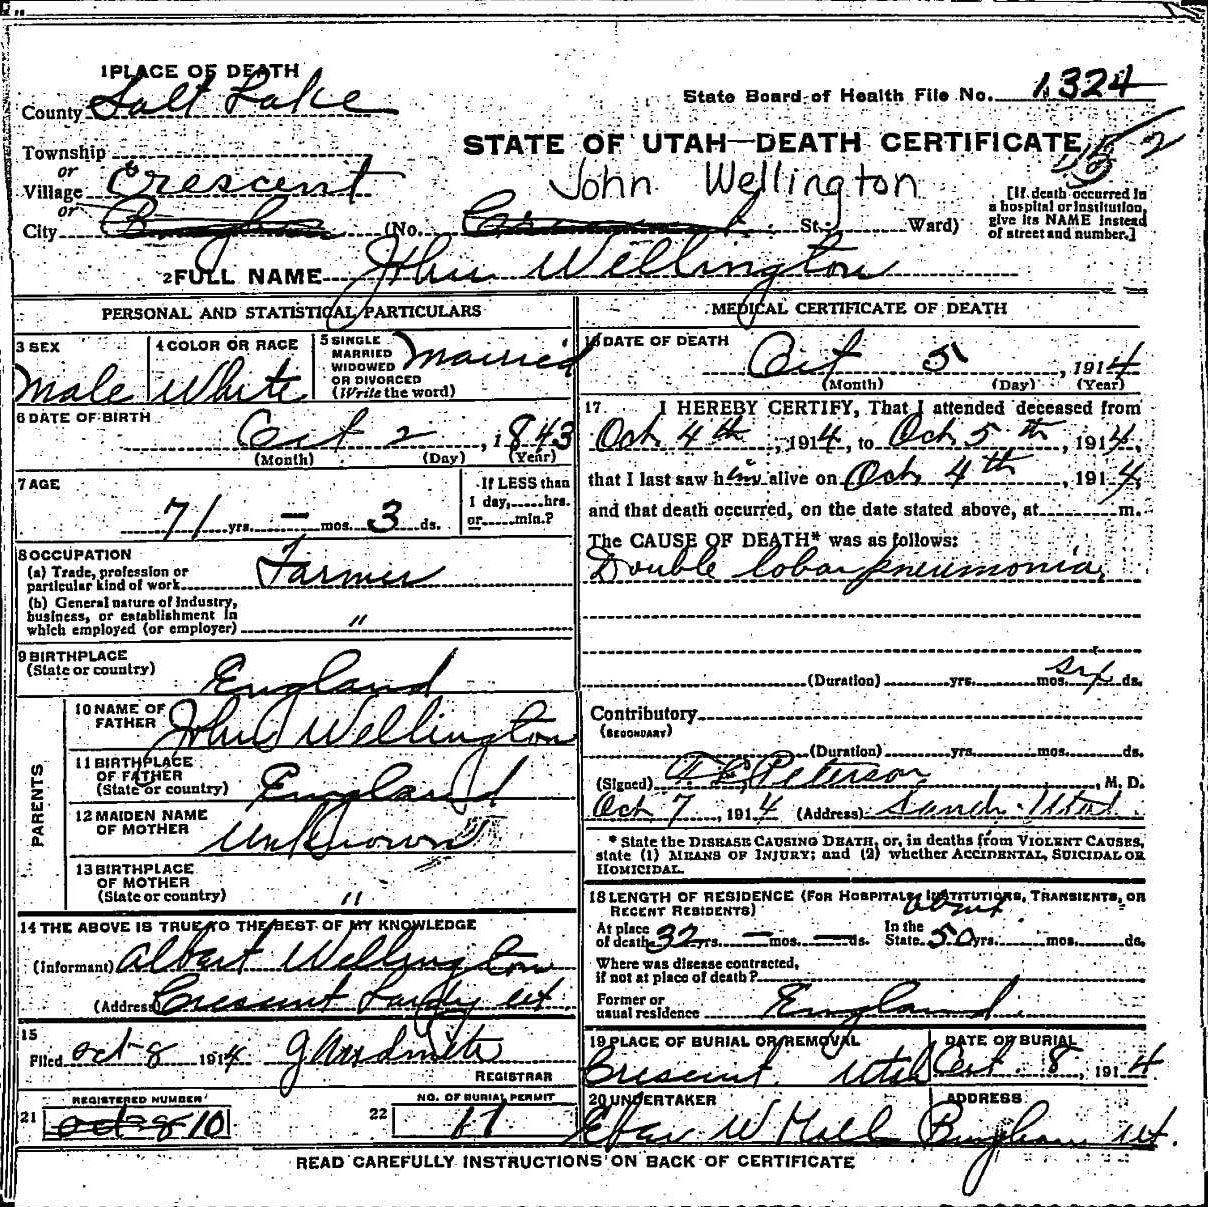 1 PLACE OF DEATH
County Salt Lake
State Board of Health File No. 1324
Township
STATE OF UTAH—DEATH CERTIFICATE
or
Village Crescent
John Wellington
[If death occurred in a hospital or institution, give its NAME instead of street and number.]
or
City (No. St. Ward)
2 FULL NAME John Wellington
PERSONAL AND STATISTICAL PARTICULARS
3 SEX
Male
4 COLOR OR RACE
White
5 SINGLE
MARRIED
WIDOWED
OR DIVORCED
(Write the word)
Married
6 DATE OF BIRTH
Oct 2, 1843
(Month) (Day) (Year)
7 AGE
71 yrs. — mos. 3 ds.
If LESS than
1 day, hrs.
or min.?
8 OCCUPATION
(a) Trade, profession or
particular kind of work Farmer
(b) General nature of Industry,
business, or establishment in
which employed (or employer) "
9 BIRTHPLACE
(State or country) England
PARENTS
10 NAME OF
FATHER John Wellington
11 BIRTHPLACE
OF FATHER
(State or country) England
12 MAIDEN NAME
OF MOTHER Unknown
13 BIRTHPLACE
OF MOTHER
(State or country) "
14 THE ABOVE IS TRUE TO THE BEST OF MY KNOWLEDGE
(Informant) Albert Wellington
(Address) Crescent Sandy Ut
15
Filed Oct 8 1914
REGISTRAR
21 REGISTERED NUMBER
10
22 NO. OF BURIAL PERMIT
17
MEDICAL CERTIFICATE OF DEATH
16 DATE OF DEATH
Oct 5, 1914
(Month) (Day) (Year)
17 I HEREBY CERTIFY, That I attended deceased from
Oct 4th, 1914, to Oct 5th, 1914,
that I last saw him alive on Oct 4th, 1914,
and that death occurred, on the date stated above, at m.
The CAUSE OF DEATH* was as follows:
Double lobar pneumonia
(Duration) yrs. mos. six ds.
Contributory
(SECONDARY)
(Duration) yrs. mos. ds.
(Signed) Peterson, M. D.
Oct 7, 1914 (Address) Sandy Utah
* State the DISEASE CAUSING DEATH, or, in deaths from VIOLENT CAUSES,
state (1) MEANS OF INJURY; and (2) whether ACCIDENTAL, SUICIDAL OR
HOMICIDAL.
18 LENGTH OF RESIDENCE (FOR HOSPITALS, INSTITUTIONS, TRANSIENTS, OR
RECENT RESIDENTS) about
At place
of death 32 yrs. — mos. — ds. In the
State 50 yrs. mos. ds.
Where was disease contracted,
if not at place of death?
Former or
usual residence England
19 PLACE OF BURIAL OR REMOVAL
Crescent Utah
DATE OF BURIAL
Oct. 8, 1914
20 UNDERTAKER
W Hill
ADDRESS
Bingham Ut.
READ CAREFULLY INSTRUCTIONS ON BACK OF CERTIFICATE